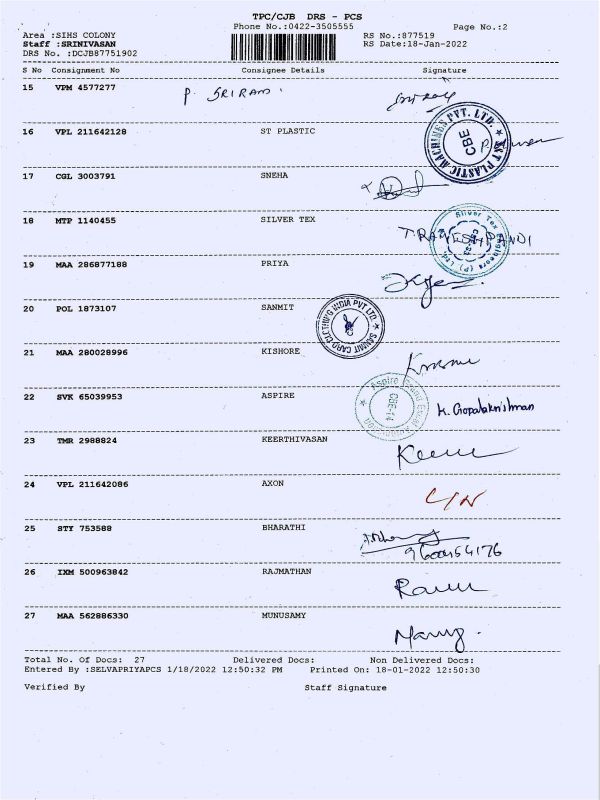 TPC/CJB DRS - PCS
Phone No.:0422-3505555 Page No.:2
Area :SIHS COLONY RS No.:877519
Staff :SRINIVASAN RS Date:18-Jan-2022
DRS No. :DCJB87751902
S No Consignment No Consignee Details Signature
15 VPM 4577277 P. SRIRAM
16 VPL 211642128 ST PLASTIC
S&T PLASTIC MACHINES PVT. LTD. CBE
17 CGL 3003791 SNEHA
18 MTP 1140455 SILVER TEX
Silver Tex Engineers (P) Ltd.
19 MAA 286877188 PRIYA
20 POL 1873107 SANMIT
SANMIT CARD CLOTHING INDIA PVT LTD
21 MAA 280028996 KISHORE
22 SVK 65039953 ASPIRE K. Gopalakrishnan
Aspire CBE-14
23 TMR 2988824 KEERTHIVASAN
24 VPL 211642086 AXON L/N
25 STY 753588 BHARATHI
9600454176
26 IXM 500963842 RAJMATHAN
27 MAA 562886330 MUNUSAMY
Total No. Of Docs: 27 Delivered Docs: Non Delivered Docs:
Entered By :SELVAPRIYAPCS 1/18/2022 12:50:32 PM Printed On: 18-01-2022 12:50:30
Verified By Staff Signature